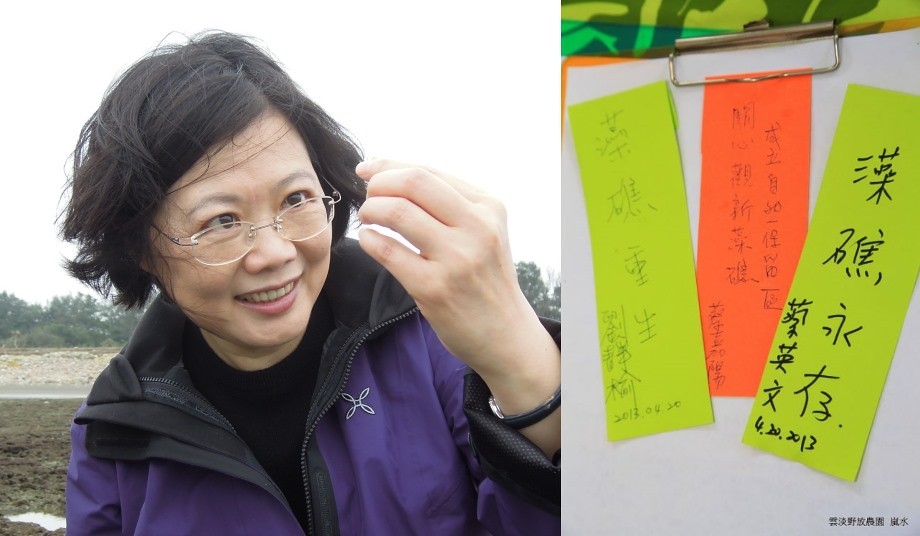 藻礁重生
劉靜榆
2013.04.20
成立自然保留區
關心觀新藻礁
蔡嘉陽
藻礁永存.
蔡英文
4.20.2013
雲淡野放農園 嵐水